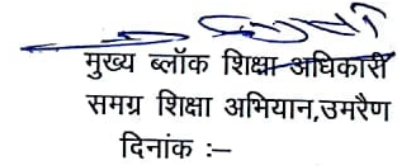 मुख्य ब्लॉक शिक्षा अधिकारी
समग्र शिक्षा अभियान,उमरैण
दिनांक :–